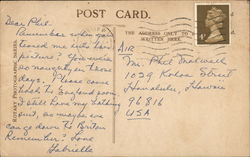 POST CARD.
THE ADDRESS ONLY TO BE
WRITTEN HERE.
Dear Phil -
Remember when you
teased me with this
picture? You were
so naughty in those
days. Please come
back to England soon
I still have my bathing
suit, so maybe we
can go down to Briton
Remember? Love
Gabrielle
AIR
Mr. Phil
1029 Kohou Street
Honolulu, Hawaii
96816
USA
4d